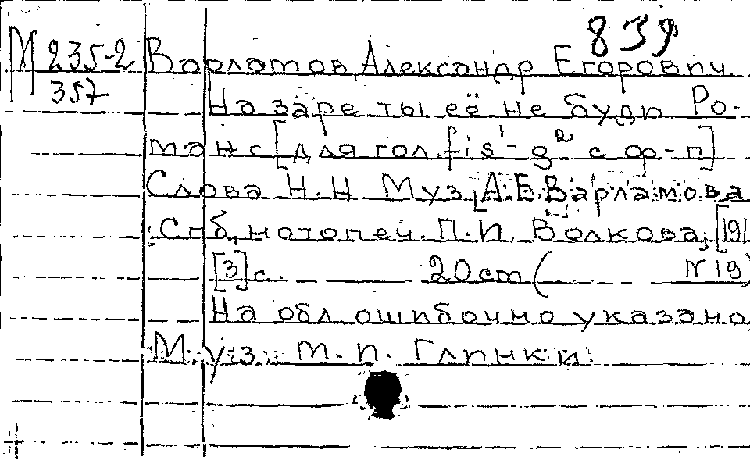 839
М 235-2 Варламов, Александр Егорович
357
На заре ты её не буди Ро-
манс [для гол. fis¹-g² с ф-п]
Слова Н.Н Муз. [А.Е.Варламова
Спб, нотопеч. П.И. Волкова, [19
[3] с. 20 cm ( N 19)
На обл. ошибочно указано
Муз. М.И. Глинки.